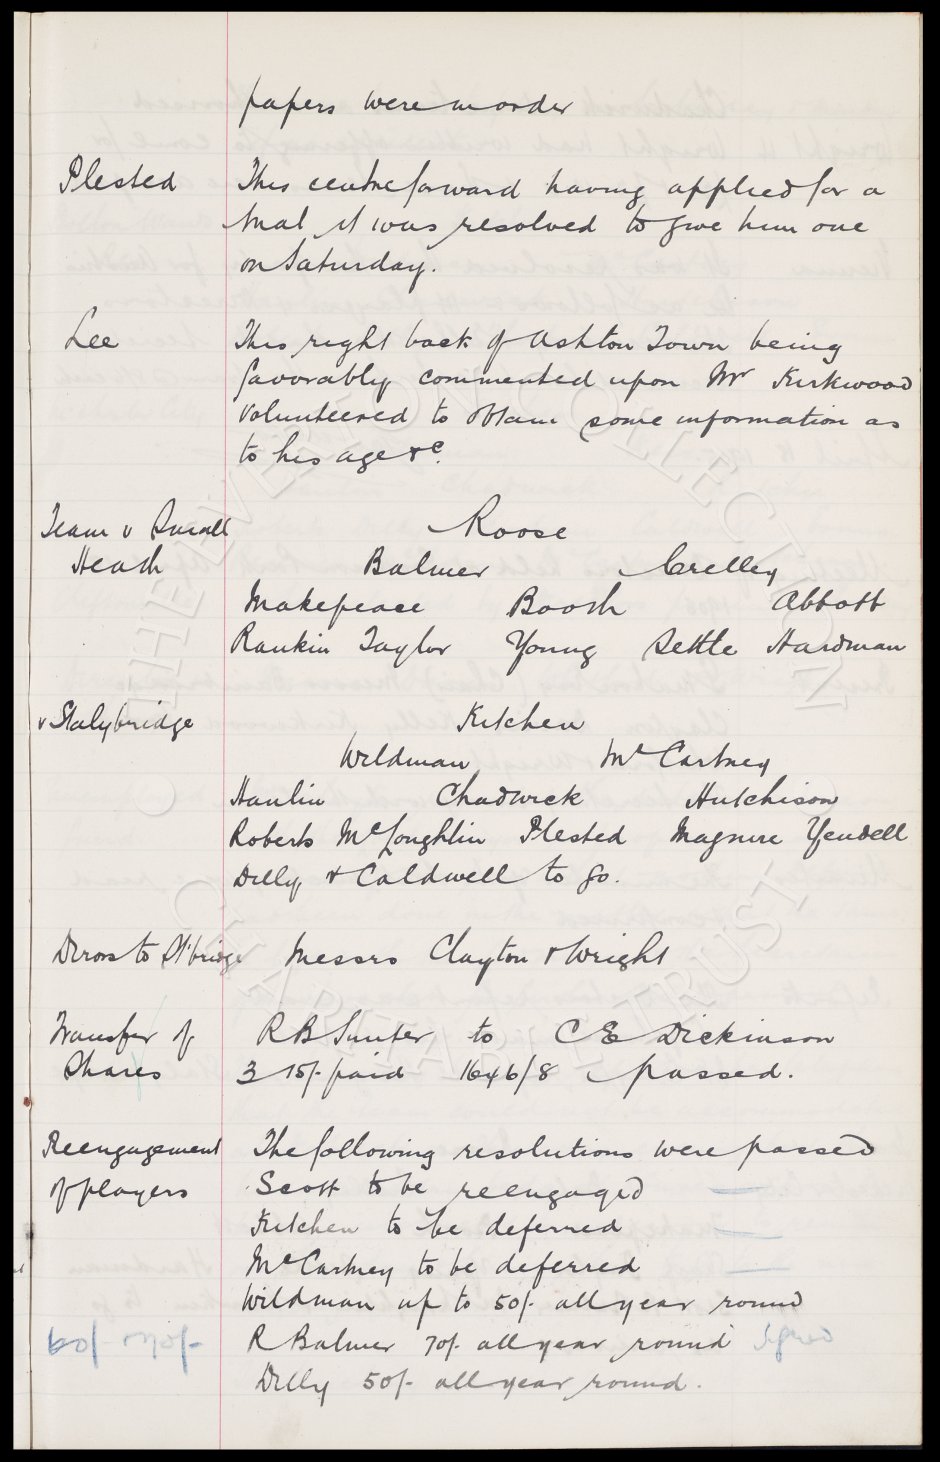 papers were in order
Plested This centre forward having applied for a
trial it was resolved to give him one
on Saturday.
Lee This right back of Ashton Town being
favorably commented upon Mr Kirkwood
volunteered to obtain some information as
to his age &c.
Team v Small Roose
Heath Balmer Crelley
Makepeace Booth Abbott
Rankin Taylor Young Settle Hardman
v Stalybridge Kitchen
Wildman McCartney
Hanlin Chadwick Hutchison
Roberts McLoughlin Plested Magnire Yendell
Dilly & Caldwell to go.
Dirors to St'bridge Messrs Clayton & Wright
Transfer of R B Sunter to C E Dickinson
Shares 3 15/- paid 1646/8 passed.
Reengagement The following resolutions were passed
of players Scott to be reengaged
Kitchen to be deferred
McCartney to be deferred
Wildman up to 50/- all year round
60/- R Balmer 70/- all year round signed
Dilly 50/- all year round.
THE EVERTON COLLECTION
CHARITABLE TRUST